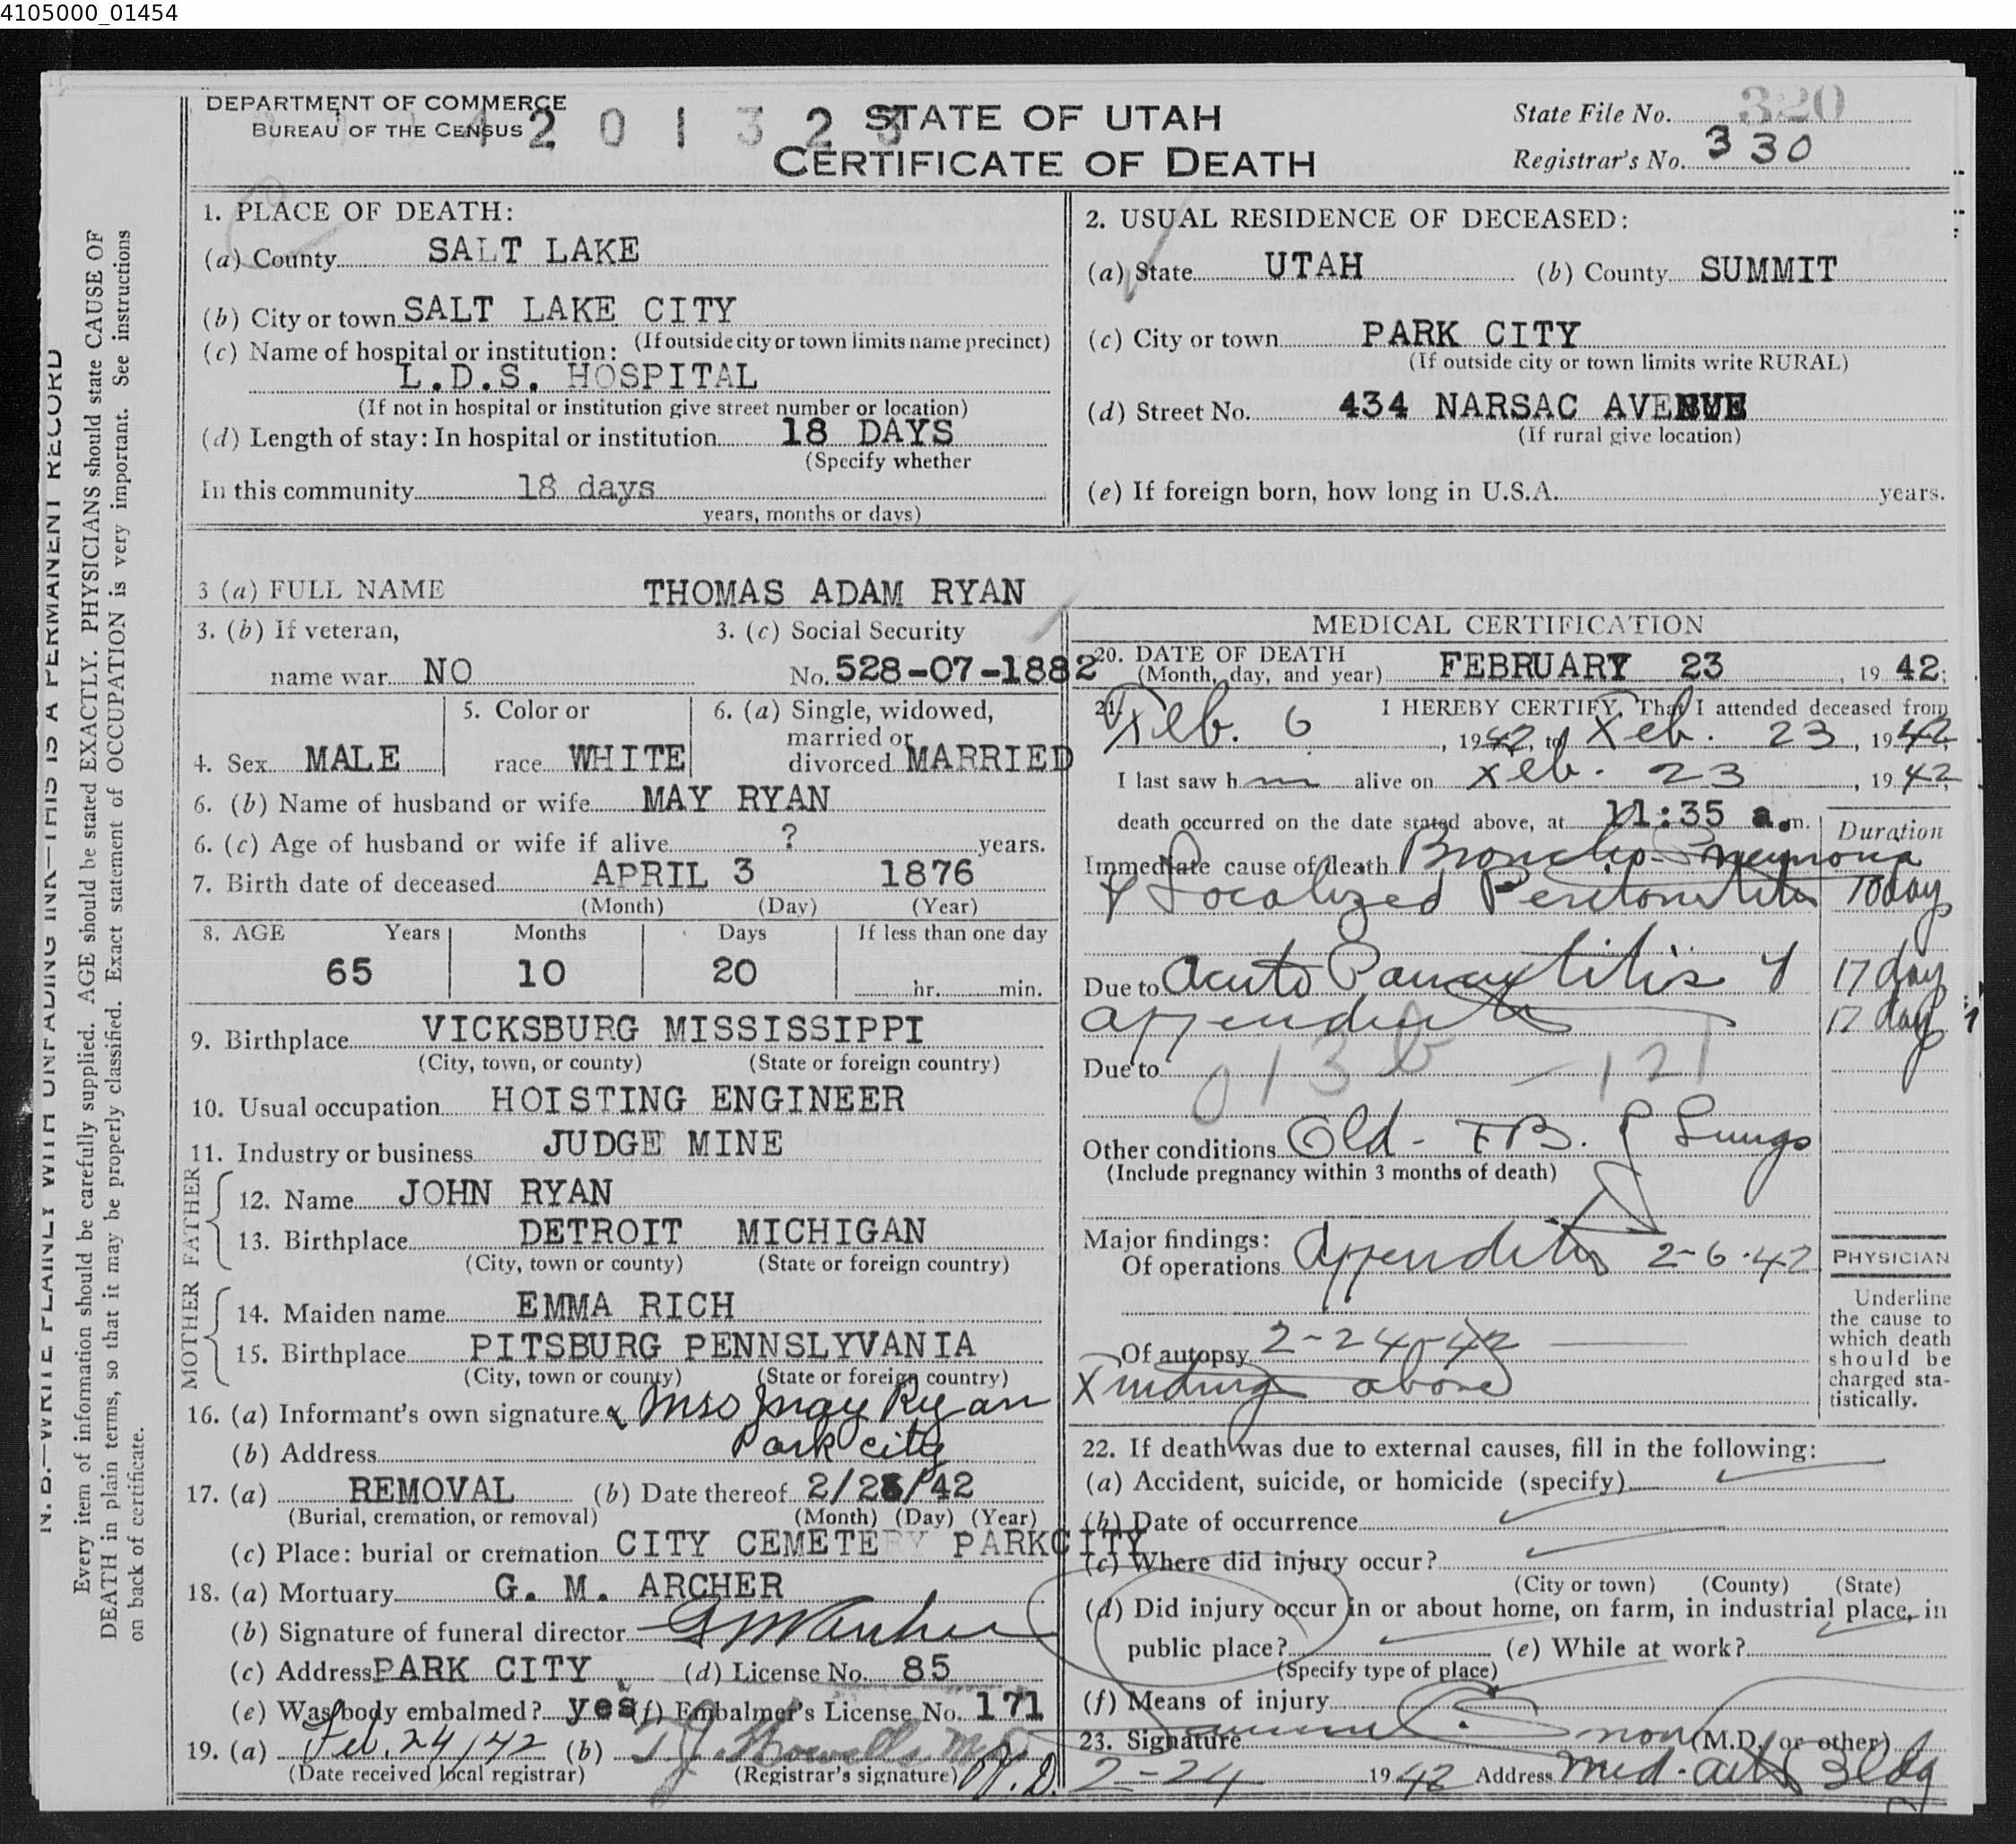 4105000_01454
DEPARTMENT OF COMMERCE
BUREAU OF THE CENSUS
STATE OF UTAH
CERTIFICATE OF DEATH
State File No. 320
Registrar's No. 330
1. PLACE OF DEATH:
(a) County SALT LAKE
(b) City or town SALT LAKE CITY
(If outside city or town limits name precinct)
(c) Name of hospital or institution:
L.D.S. HOSPITAL
(If not in hospital or institution give street number or location)
(d) Length of stay: In hospital or institution 18 DAYS
(Specify whether
In this community 18 days
years, months or days)
2. USUAL RESIDENCE OF DECEASED:
(a) State UTAH (b) County SUMMIT
(c) City or town PARK CITY
(If outside city or town limits write RURAL)
(d) Street No. 434 NARSAC AVENUE
(If rural give location)
(e) If foreign born, how long in U.S.A. years.
3 (a) FULL NAME THOMAS ADAM RYAN
3. (b) If veteran, 3. (c) Social Security
name war NO No. 528-07-1882
4. Sex MALE
5. Color or
race WHITE
6. (a) Single, widowed,
married or
divorced MARRIED
6. (b) Name of husband or wife MAY RYAN
6. (c) Age of husband or wife if alive ? years.
7. Birth date of deceased APRIL 3 1876
(Month) (Day) (Year)
8. AGE Years Months Days If less than one day
65 10 20 hr. min.
9. Birthplace VICKSBURG MISSISSIPPI
(City, town, or county) (State or foreign country)
10. Usual occupation HOISTING ENGINEER
11. Industry or business JUDGE MINE
FATHER
12. Name JOHN RYAN
13. Birthplace DETROIT MICHIGAN
(City, town or county) (State or foreign country)
MOTHER
14. Maiden name EMMA RICH
15. Birthplace PITSBURG PENNSLYVANIA
(City, town or county) (State or foreign country)
16. (a) Informant's own signature x Mrs May Ryan
(b) Address Park City
17. (a) REMOVAL (b) Date thereof 2/25/42
(Burial, cremation, or removal) (Month) (Day) (Year)
(c) Place: burial or cremation CITY CEMETERY PARKCITY
18. (a) Mortuary G. M. ARCHER
(b) Signature of funeral director G M Archer
(c) Address PARK CITY (d) License No. 85
(e) Was body embalmed? yes (f) Embalmer's License No. 171
19. (a) Feb. 24/42 (b) T. J. Howells M.D.
(Date received local registrar) (Registrar's signature)
MEDICAL CERTIFICATION
20. DATE OF DEATH
(Month, day, and year) FEBRUARY 23, 1942;
21. I HEREBY CERTIFY, That I attended deceased from
Feb. 6, 1942, to Feb. 23, 1942,
I last saw him alive on Feb. 23, 1942,
death occurred on the date stated above, at 11:35 a.m.
Duration
Immediate cause of death Broncho-Pneumonia
& Localized Peritonitis 10 day
Due to Acute Pancreatitis & 17 day
appendicitis 17 day
Due to
013b - 121
Other conditions Old - TB. Lungs
(Include pregnancy within 3 months of death)
Major findings:
Of operations Appendicitis 2-6-42
Of autopsy 2-24-42
Findings above
PHYSICIAN
Underline
the cause to
which death
should be
charged sta-
tistically.
22. If death was due to external causes, fill in the following:
(a) Accident, suicide, or homicide (specify)
(b) Date of occurrence
(c) Where did injury occur?
(City or town) (County) (State)
(d) Did injury occur in or about home, on farm, in industrial place, in
public place? (e) While at work?
(Specify type of place)
(f) Means of injury
23. Signature Snow (M.D. or other)
2-24 1942 Address Med. Arts Bldg
N. B.—WRITE PLAINLY WITH UNFADING INK—THIS IS A PERMANENT RECORD
Every item of information should be carefully supplied. AGE should be stated EXACTLY. PHYSICIANS should state CAUSE OF
DEATH in plain terms, so that it may be properly classified. Exact statement of OCCUPATION is very important. See instructions
on back of certificate.